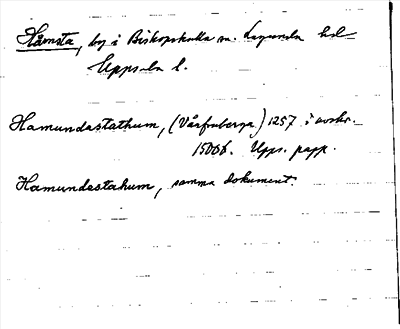 Håmsta, by i Biskopskulla sn. Lagunda hd
Uppsala l.
Hamundastathum, (Vårfruberga) 1257 i avskr.
1500t. Upps. papp.
Hamundastahum, samma dokument.